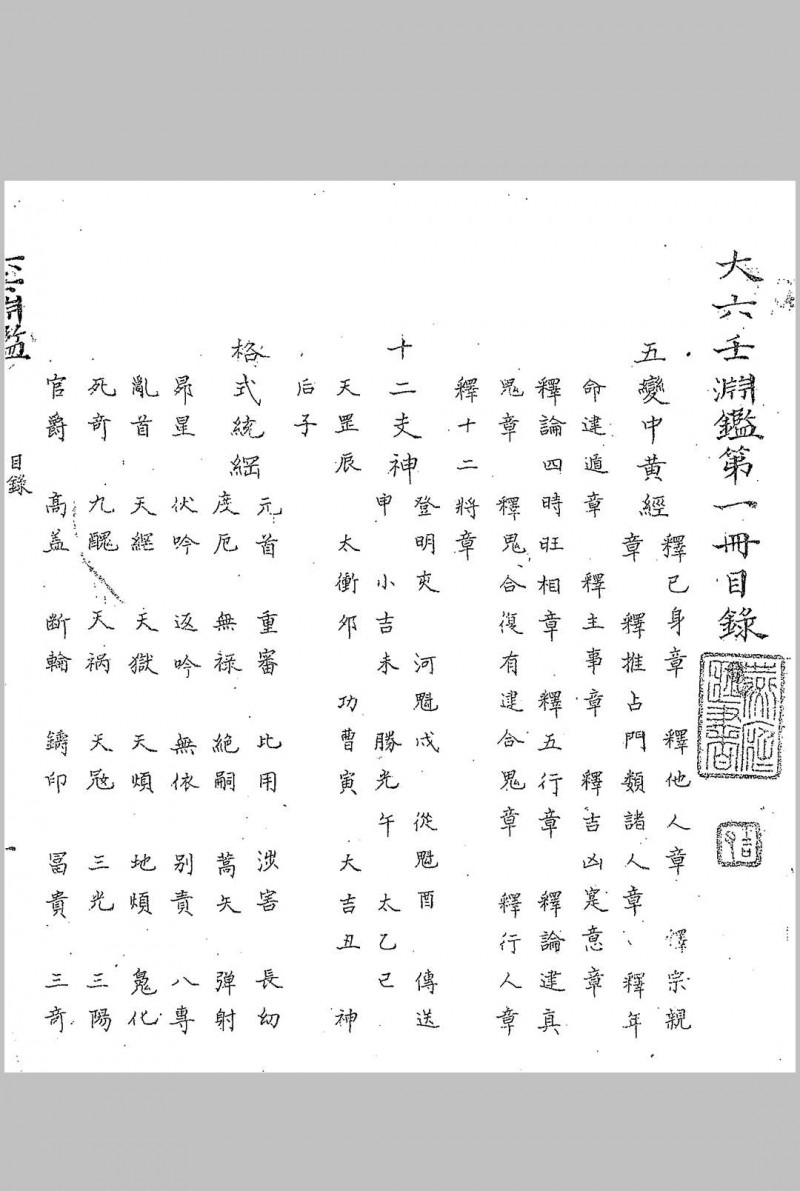 大六壬淵鑑第一冊目錄
五變中黃經 釋己身章 釋他人章 釋宗親
章 釋推占門類諸人章、釋年
命建遁章 釋主事章 釋吉凶寔意章
釋論四時旺相章 釋五行章 釋論建真
鬼章 釋鬼合復有建合鬼章 釋行人章
釋十二將章
十二支神 登明亥 河魁戍 從魁酉 傳送
申 小吉未 勝光午 太乙巳
天罡辰 太衝卯 功曹寅 大吉丑 神
后子
格式統綱 元首 重審 比用 涉害 長幼
度厄 無祿 絕嗣 蒿矢 弹射
昴星 伏吟 返吟 無依 别責 八專
亂首 天網 天獄 天煩 地煩 鬼化
死奇 九醜 天禍 天冦 三光 三陽
官爵 高盖 斷輪 鑄印 冨貴 三奇
壬淵鑑
目錄
一